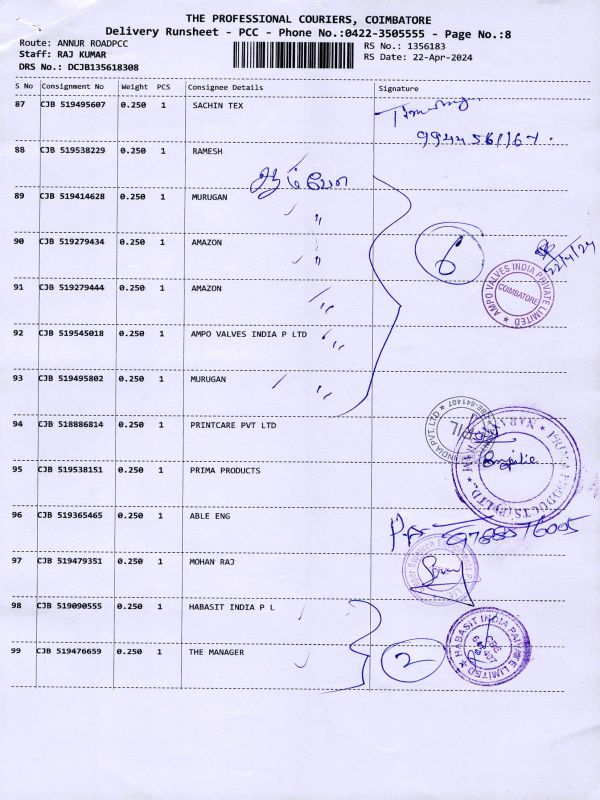 THE PROFESSIONAL COURIERS, COIMBATORE
Delivery Runsheet - PCC - Phone No.:0422-3505555 - Page No.:8
Route: ANNUR ROADPCC
RS No.: 1356183
Staff: RAJ KUMAR
RS Date: 22-Apr-2024
DRS No.: DCJB135618308
S No Consignment No Weight PCS Consignee Details Signature
87 CJB 519495607 0.250 1 SACHIN TEX
88 CJB 519538229 0.250 1 RAMESH
89 CJB 519414628 0.250 1 MURUGAN
〃
90 CJB 519279434 0.250 1 AMAZON
〃
6
22/4/24
91 CJB 519279444 0.250 1 AMAZON
〃
AMPO VALVES INDIA PRIVATE LIMITED
COIMBATORE
92 CJB 519545018 0.250 1 AMPO VALVES INDIA P LTD
〃
93 CJB 519495802 0.250 1 MURUGAN
〃
94 CJB 518886814 0.250 1 PRINTCARE PVT LTD
95 CJB 519538151 0.250 1 PRIMA PRODUCTS
96 CJB 519365465 0.250 1 ABLE ENG
97 CJB 519479351 0.250 1 MOHAN RAJ
98 CJB 519090555 0.250 1 HABASIT INDIA P L
99 CJB 519476659 0.250 1 THE MANAGER
2
HABASIT INDIA PRIVATE LIMITED
CBE